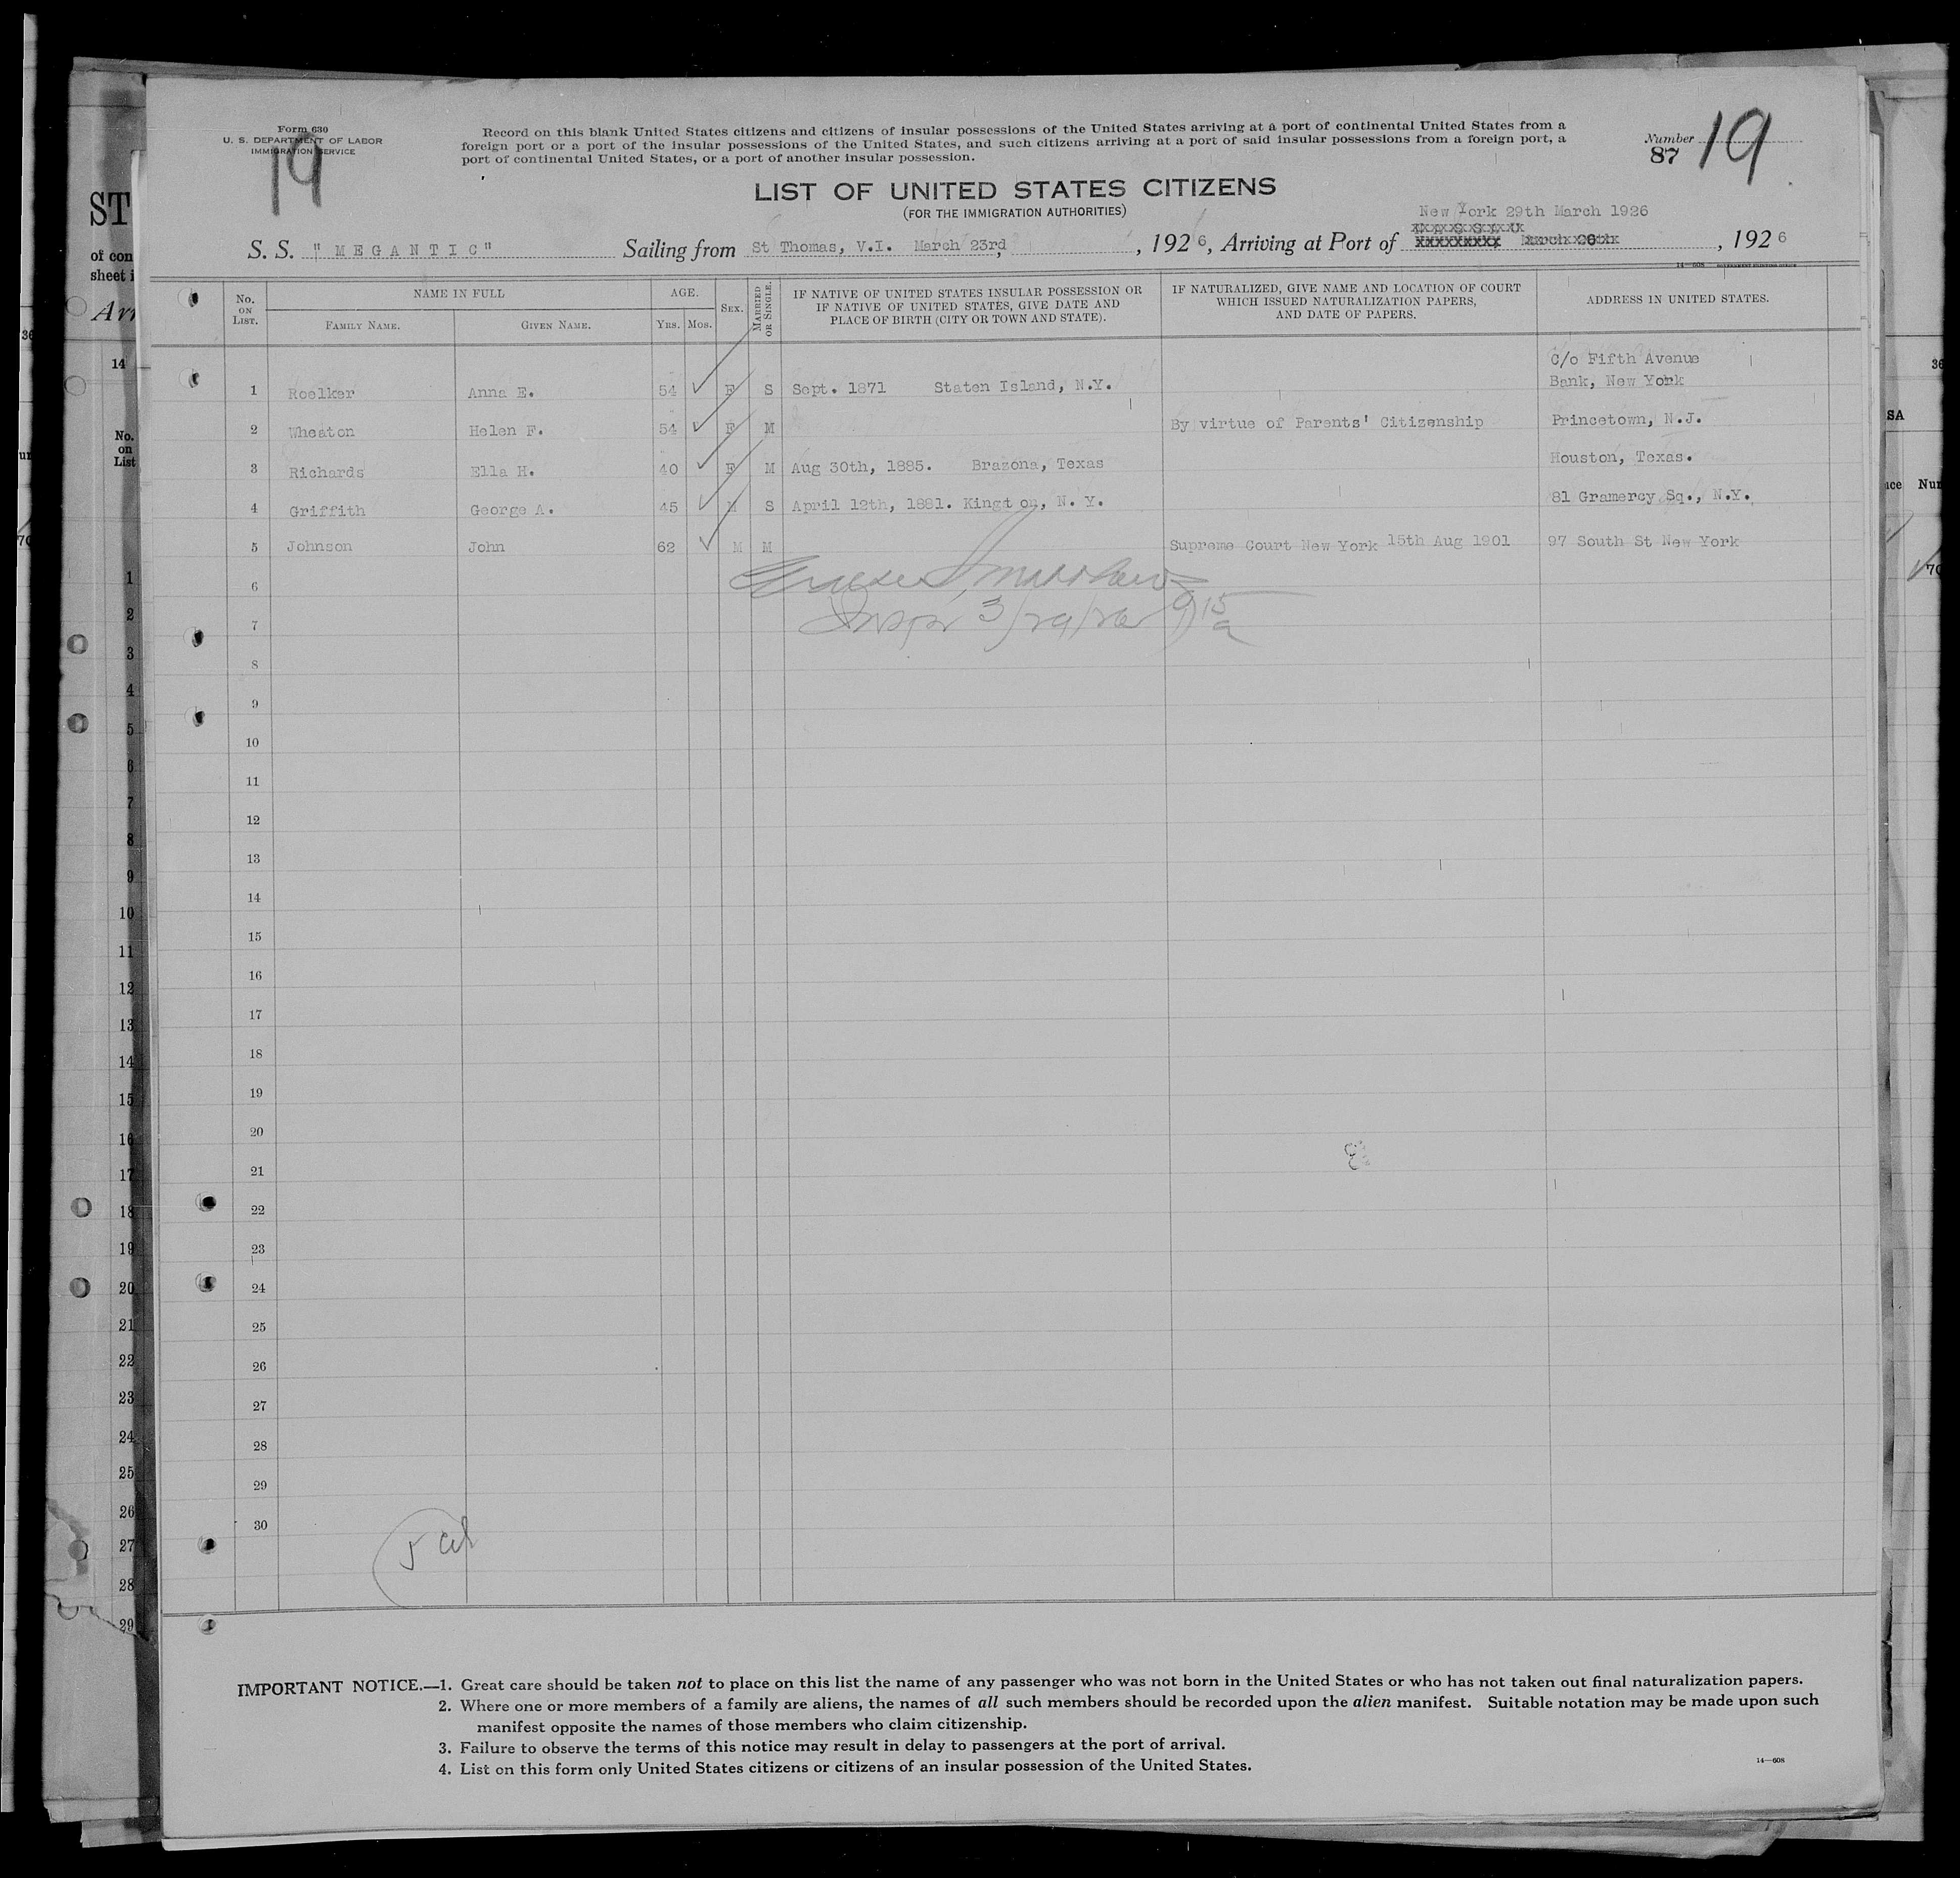 Form 630
U. S. DEPARTMENT OF LABOR
IMMIGRATION SERVICE
19
Record on this blank United States citizens and citizens of insular possessions of the United States arriving at a port of continental United States from a
foreign port or a port of the insular possessions of the United States, and such citizens arriving at a port of said insular possessions from a foreign port, a
port of continental United States, or a port of another insular possession.
Number 19
87
LIST OF UNITED STATES CITIZENS
(FOR THE IMMIGRATION AUTHORITIES)
New York 29th March 1926
S. S. "MEGANTIC" Sailing from St Thomas, V.I. March 23rd, , 1926, Arriving at Port of , 1926
14—608
No. ON LIST.
NAME IN FULL
FAMILY NAME. GIVEN NAME.
AGE.
YRS. MOS.
SEX.
MARRIED OR SINGLE.
IF NATIVE OF UNITED STATES INSULAR POSSESSION OR
IF NATIVE OF UNITED STATES, GIVE DATE AND
PLACE OF BIRTH (CITY OR TOWN AND STATE).
IF NATURALIZED, GIVE NAME AND LOCATION OF COURT
WHICH ISSUED NATURALIZATION PAPERS,
AND DATE OF PAPERS.
ADDRESS IN UNITED STATES.
C/o Fifth Avenue
1 Roelker Anna E. 54 F S Sept. 1871 Staten Island, N.Y. Bank, New York
2 Wheaton Helen F. 54 F M By virtue of Parents' Citizenship Princetown, N.J.
3 Richards Ella H. 40 F M Aug 30th, 1885. Brazona, Texas Houston, Texas.
4 Griffith George A. 45 M S April 12th, 1881. Kingston, N. Y. 81 Gramercy Sq., N.Y.
5 Johnson John 62 M M Supreme Court New York 15th Aug 1901 97 South St New York
6
7 Inspr 3/29/26 9 15 a
8
9
10
11
12
13
14
15
16
17
18
19
20
21
22
23
24
25
26
27
28
29
30
IMPORTANT NOTICE.—1. Great care should be taken not to place on this list the name of any passenger who was not born in the United States or who has not taken out final naturalization papers.
2. Where one or more members of a family are aliens, the names of all such members should be recorded upon the alien manifest. Suitable notation may be made upon such
manifest opposite the names of those members who claim citizenship.
3. Failure to observe the terms of this notice may result in delay to passengers at the port of arrival.
4. List on this form only United States citizens or citizens of an insular possession of the United States.
14—608